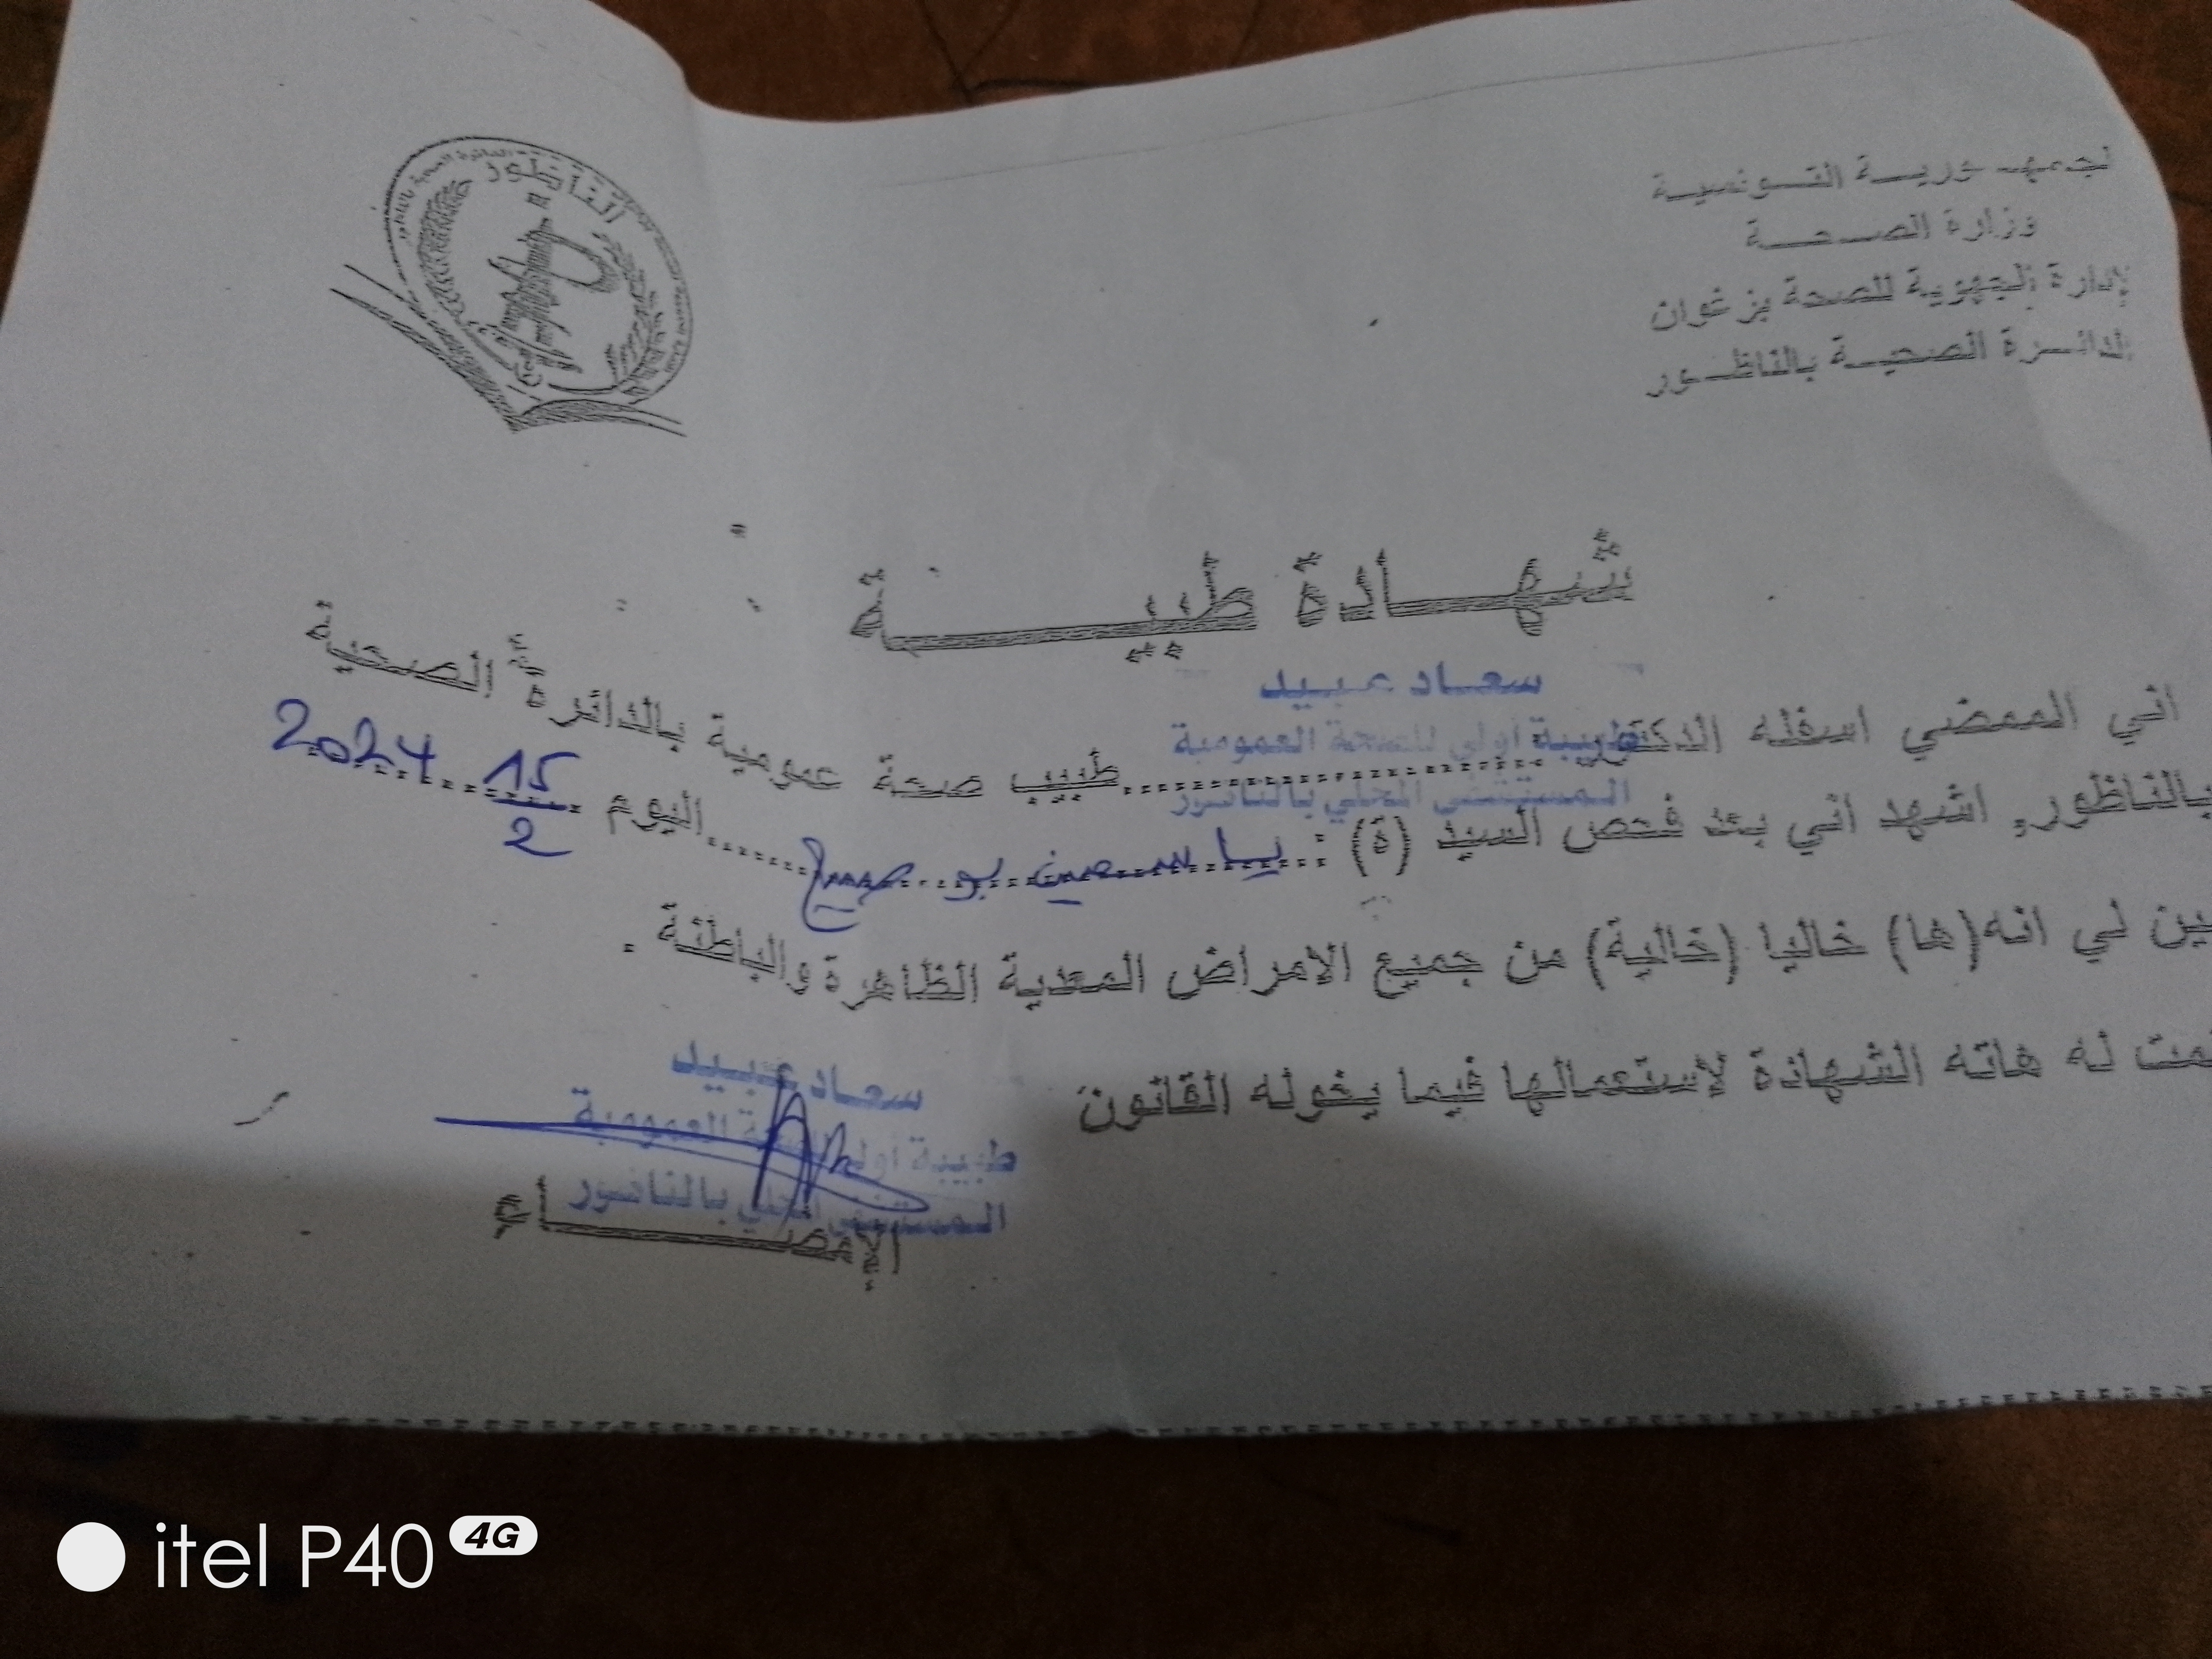 لجمهـوريـــة التـــونسيـــة
وزارة الصـــحـــــة
لإدارة الجهوية للصحة بزغوان
لدائـــرة الصحيـــة بالناظـــور
الناظور
شهـــــادة طبيـــــــــة
سعـاد عبـيـد
طبيبة أولى للصحة العمومية
المستشفى المحلي بالناظور
اني الممضي اسفله الدكتور ........ طبيب صحة عمومية بالدائرة الصحية
بالناظور, اشهد اني بعد فحص السيد (ة) : ياسمين بو ........ اليوم 15/2 2024
بين لي انه(ها) خاليا (خالية) من جميع الامراض المعدية الظاهرة والباطنة .
لمت له هاته الشهادة لإستعمالها فيما يخوله القانون
سعـاد عبـيـد
طبيبة أولى للصحة العمومية
المستشفى المحلي بالناظور
الإمضـــــــاء
itel P40 4G